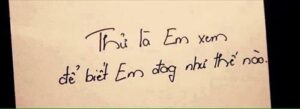 Thử là Em xem
để biết Em đag như thế nào.